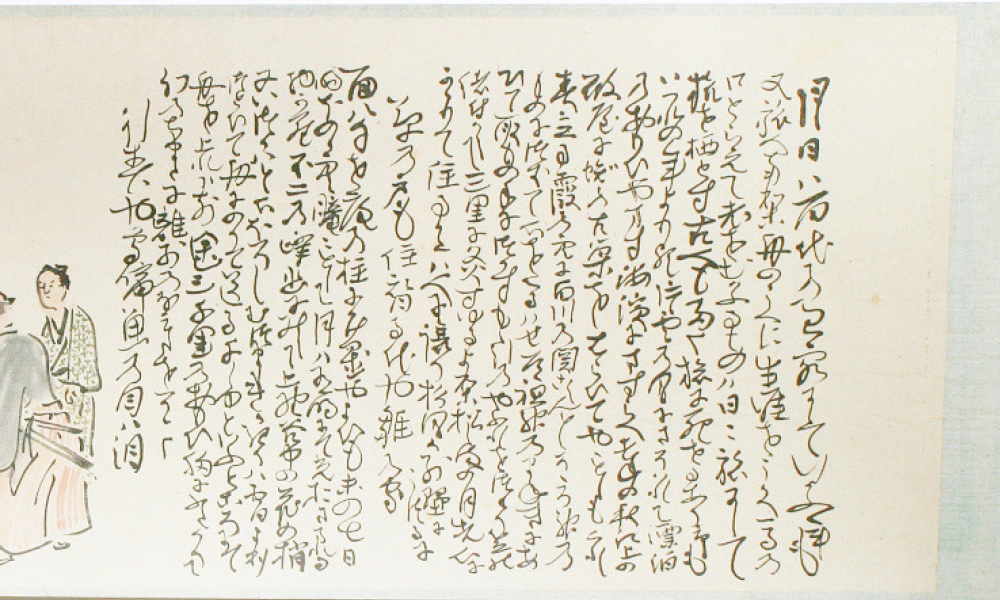 月日は百代の過客にして行かふ年も
又旅人也舟の上に生涯をうかへ馬の
口とらえて老をむかふるものは日々旅にして
旅を栖とす古人も多く旅に死せるあり予も
いつれの年よりか片雲の風にさそはれて漂泊
の思ひやます海浜にさすらへ去年の秋江上の
破屋に蜘の古巣をはらひてやゝとしも暮
春立る霞の空に白川の関こえんとそゝろ神の
ものにつきて心をくるはせ道祖神のまねきにあ
ひて取もの手につかすもゝ引のやふれをつゝり笠の
緒付かへて三里に灸すゆるより松島の月先心に
かゝりて住る方は人に譲り杉風か別墅に
移るに
草の戸も住替る代や雛の家
面八句を庵の柱に懸置やよひも末の七日
明ほのゝ空朧々として月は有明にて光おさまれる
物から不二の峰幽に見えて上野谷中の花の梢
又いつかはと心ほそしむつましきかきりは宵より
つとひて舟にのりて送る千しゆといふところにて
舟を上れは前途三千里のおもひ胸にふさかりて
幻のちまたに離別のなみたをそゝく
行春や鳥啼魚の目は泪